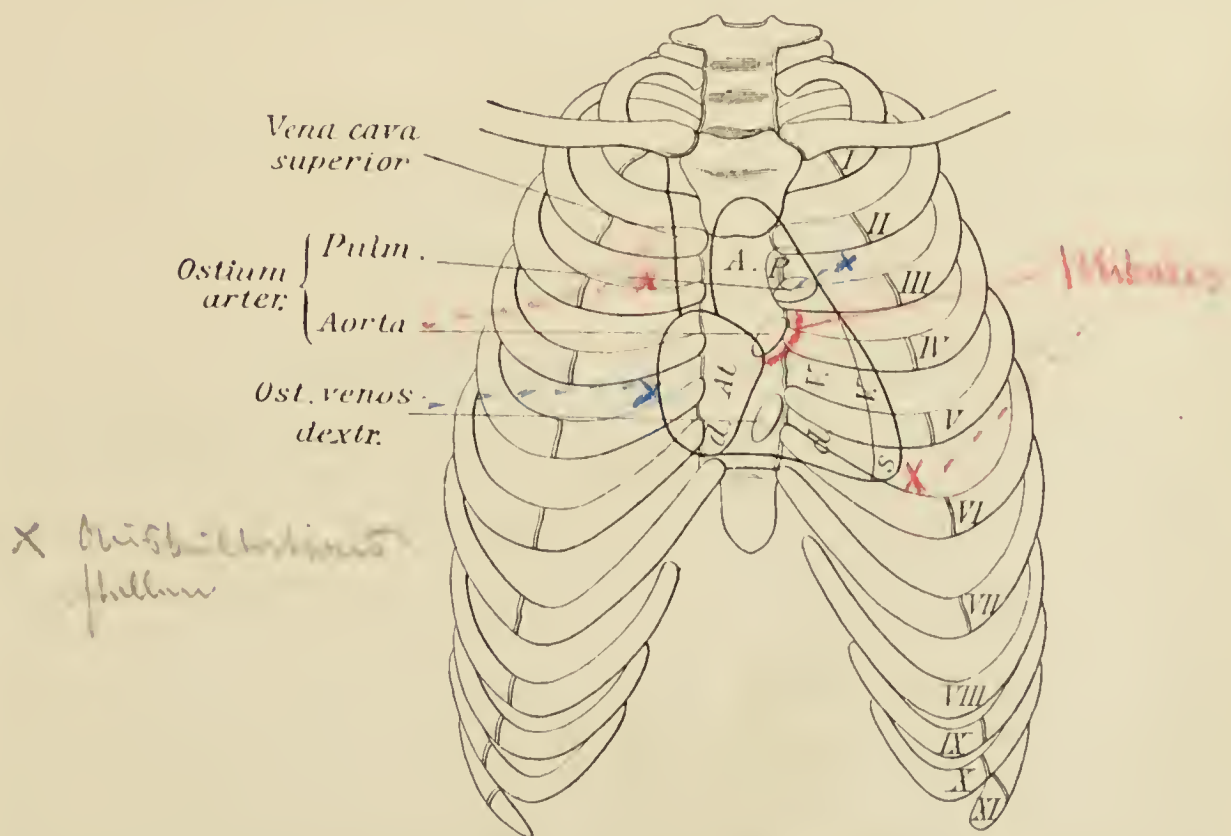 Vena cava
superior
Ostium
arter.
Pulm.
Aorta
Ost. venos
dextr.
I
II
III
IV
V
VI
VII
VIII
IX
X
XI
A.
P.
At
d.
V.
d.
V.
S
X
X